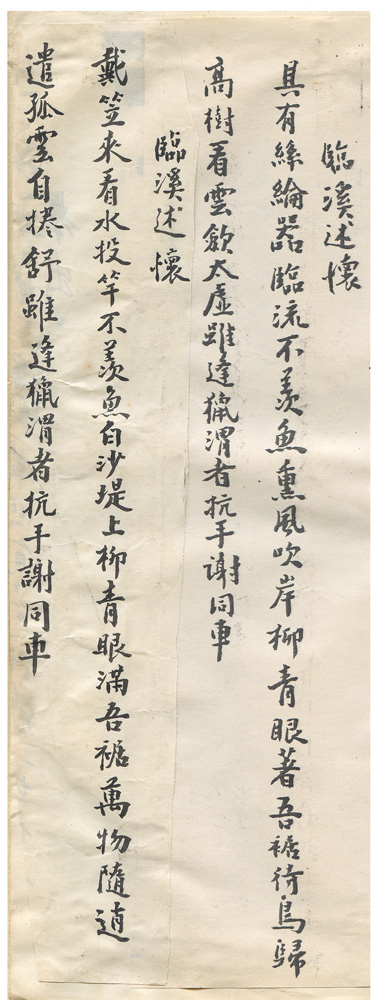 臨溪述懷
具有絲綸器臨流不羨魚熏風吹岸柳青眼著吾裾待鳥歸
高樹看雲斂太虛雖逢獵渭者抗手謝同車
臨溪述懷
戴笠來看水投竿不羨魚白沙堤上柳青眼滿吾裾萬物隨逍
遣孤雲自捲舒雖逢獵渭者抗手謝同車